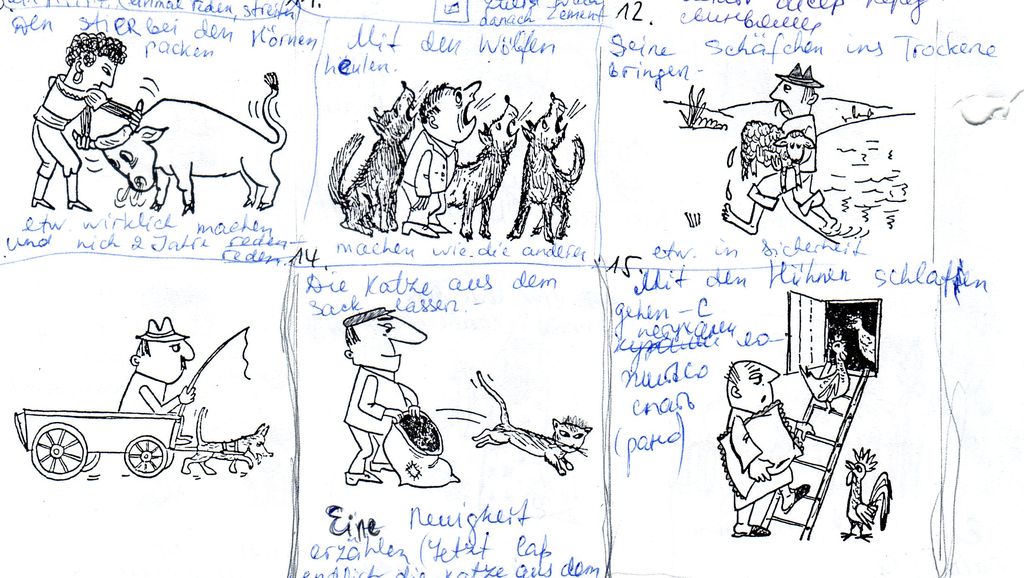 einmal reden, streiten
den STIER bei den Hörnen
packen
etw. wirklich machen
und nich 2 Jahre reden-
reden.
Mit den Wölfen
heulen.
machen wie die anderen
danach Zement
12.
Seine Schäfchen ins Trockene
bringen-
etw. in Sicherheit
14.
Die Katze aus dem
Sack lassen.
Eine Neuigkeit
erzählen (Jetzt laß
endlich die Katze aus dem
15.
Mit den Hühnen schlaffen
gehen - с
петухами
ло-
житься
спать
(рано)